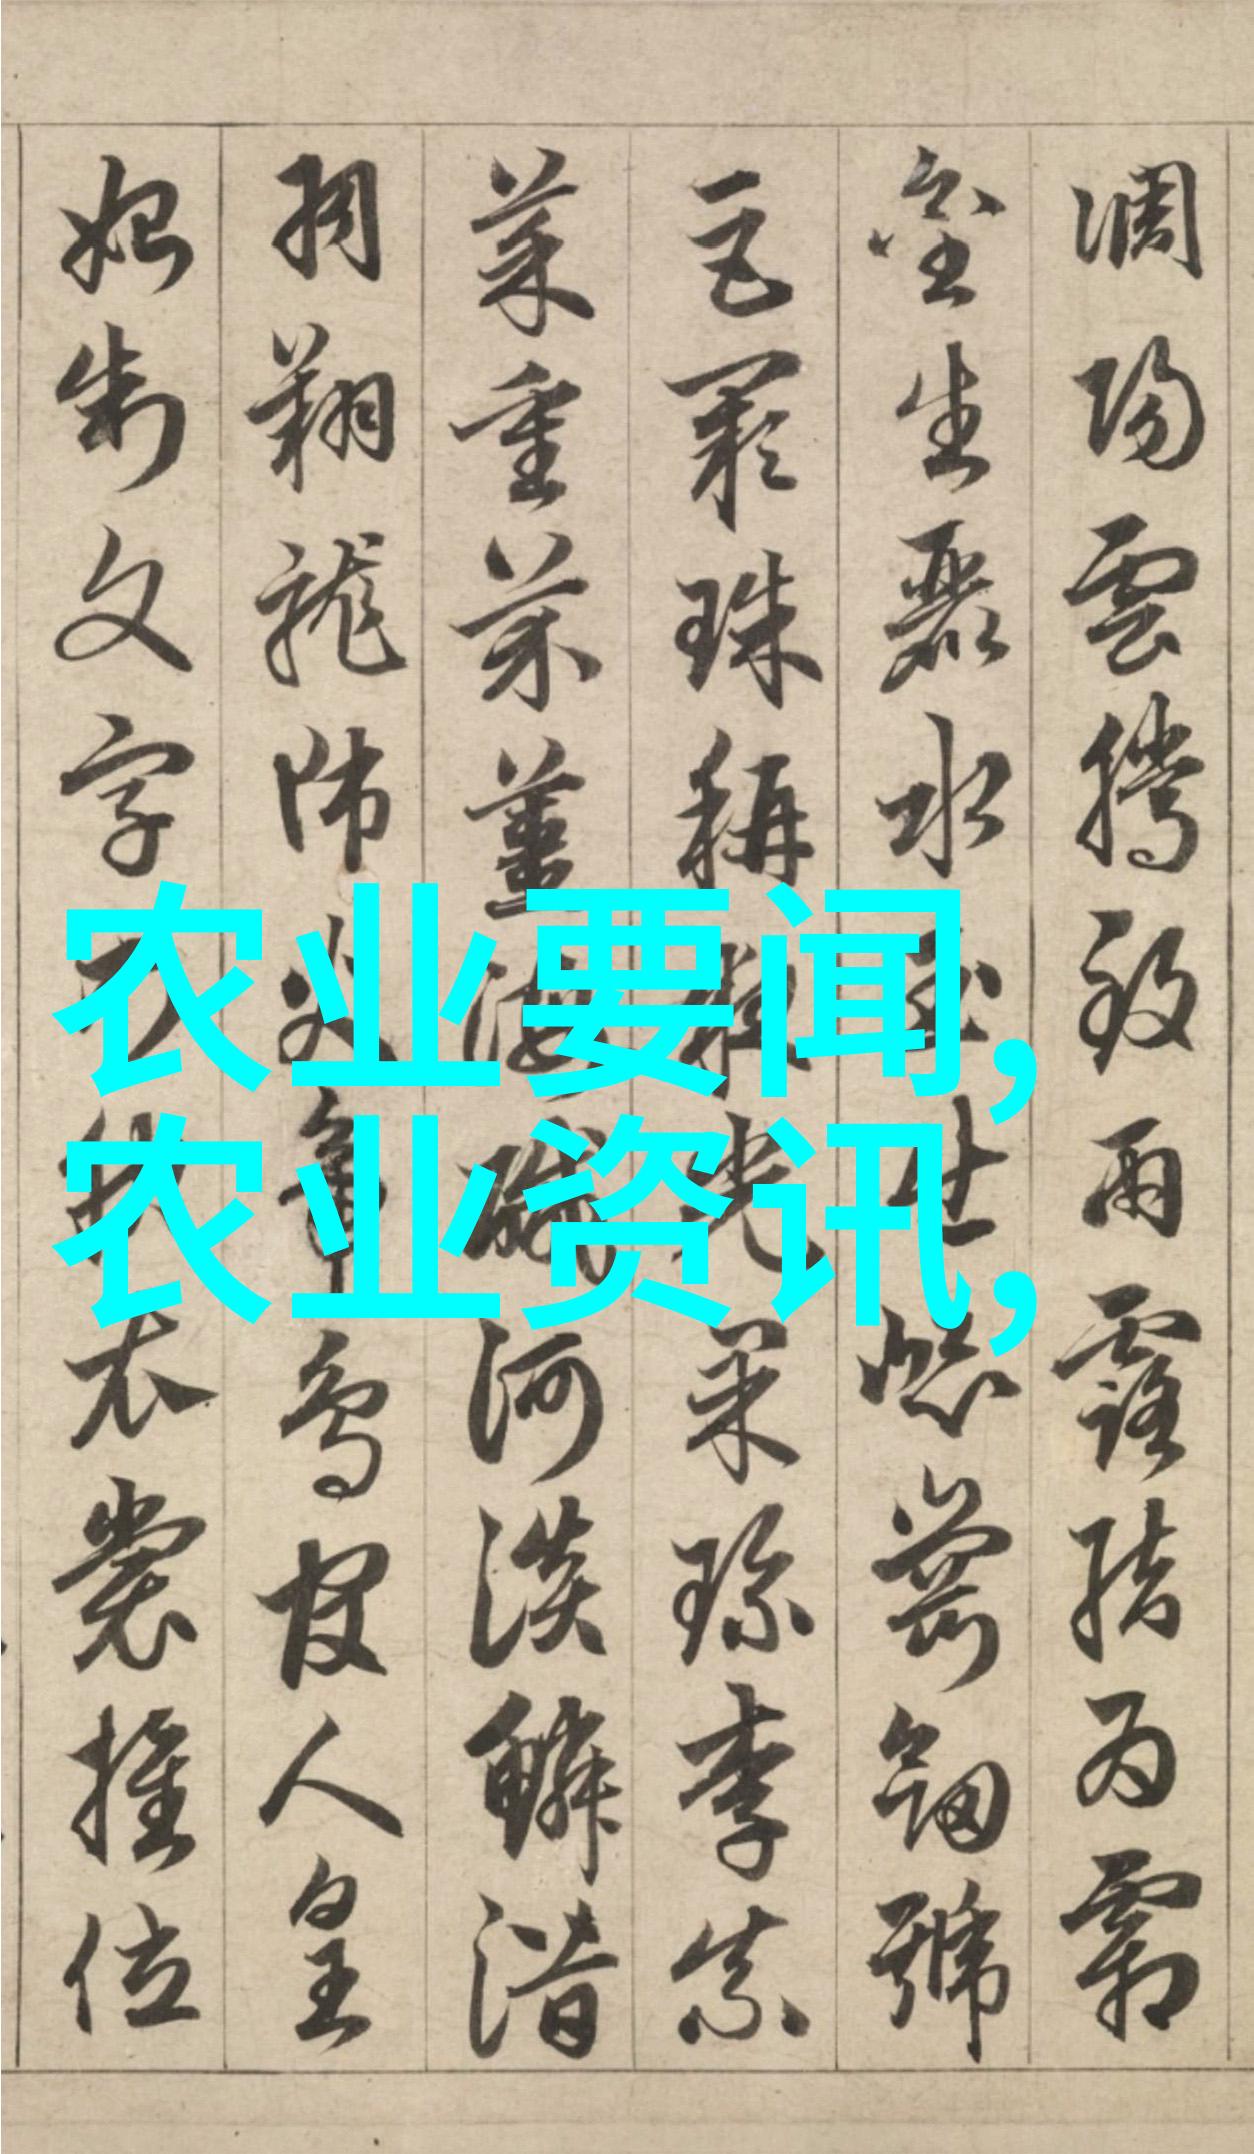 農业要闻,
农业资讯,
調陽雲騰致雨露結為霜
金生麗水玉出崑崗劍號
巨闕珠稱夜光果珍李柰
菜重芥薑海鹹河淡鱗潛
羽翔龍師火帝鳥官人皇
始制文字乃服衣裳推位